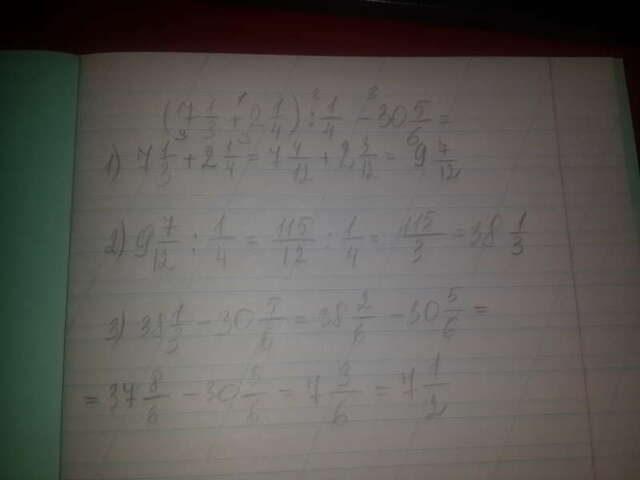 (7 1/3 + 2 1/4) : 1/4 − 30 5/6 =
1) 7 1/3 + 2 1/4 = 7 4/12 + 2 3/12 = 9 7/12
2) 9 7/12 : 1/4 = 115/12 : 1/4 = 115/3 = 38 1/3
3) 38 1/3 − 30 5/6 = 38 2/6 − 30 5/6 =
= 37 8/6 − 30 5/6 = 7 3/6 = 7 1/2